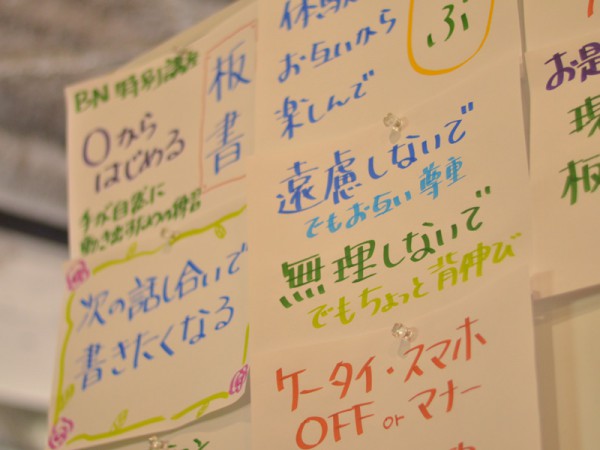 BN 特別講
板書
0から
はじめる
手が自然に
次の話し合いで
書きたくなる
体験
お互いから
楽しんで
ぶ
遠慮しないで
でもお互い尊重
無理しないで
でもちょっと背伸び
ケータイ・スマホ
OFF or マナー
お是
現
板